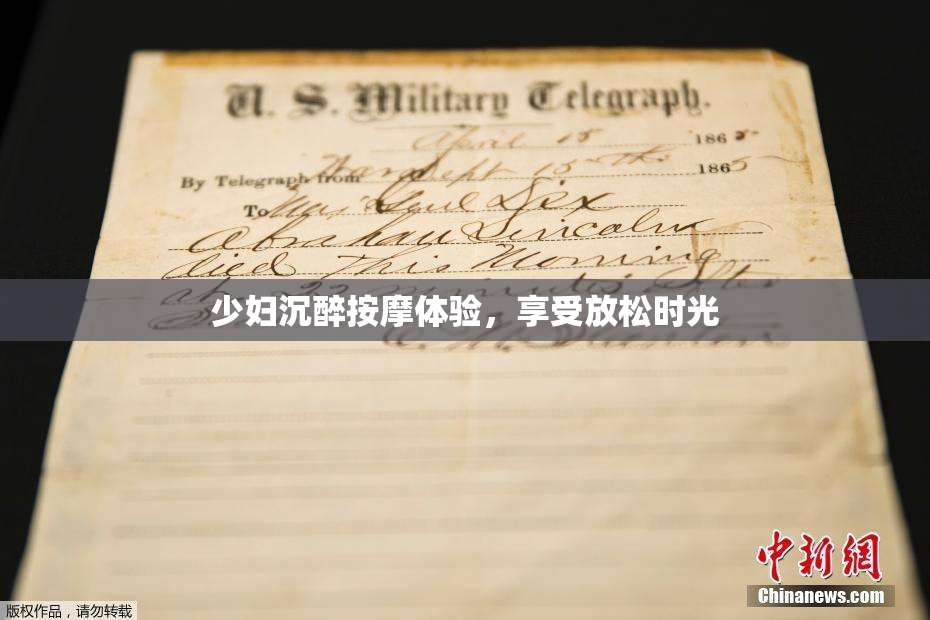 U. S. Military Telegraph.
April 15 1865
By Telegraph from War Dept 15th 1865
To Maj Genl Dix
Abraham Lincoln
died This Morning
at 22 minutes after
少妇沉醉按摩体验，享受放松时光
E. M. Stanton
中新网
Chinanews.com
版权作品，请勿转载